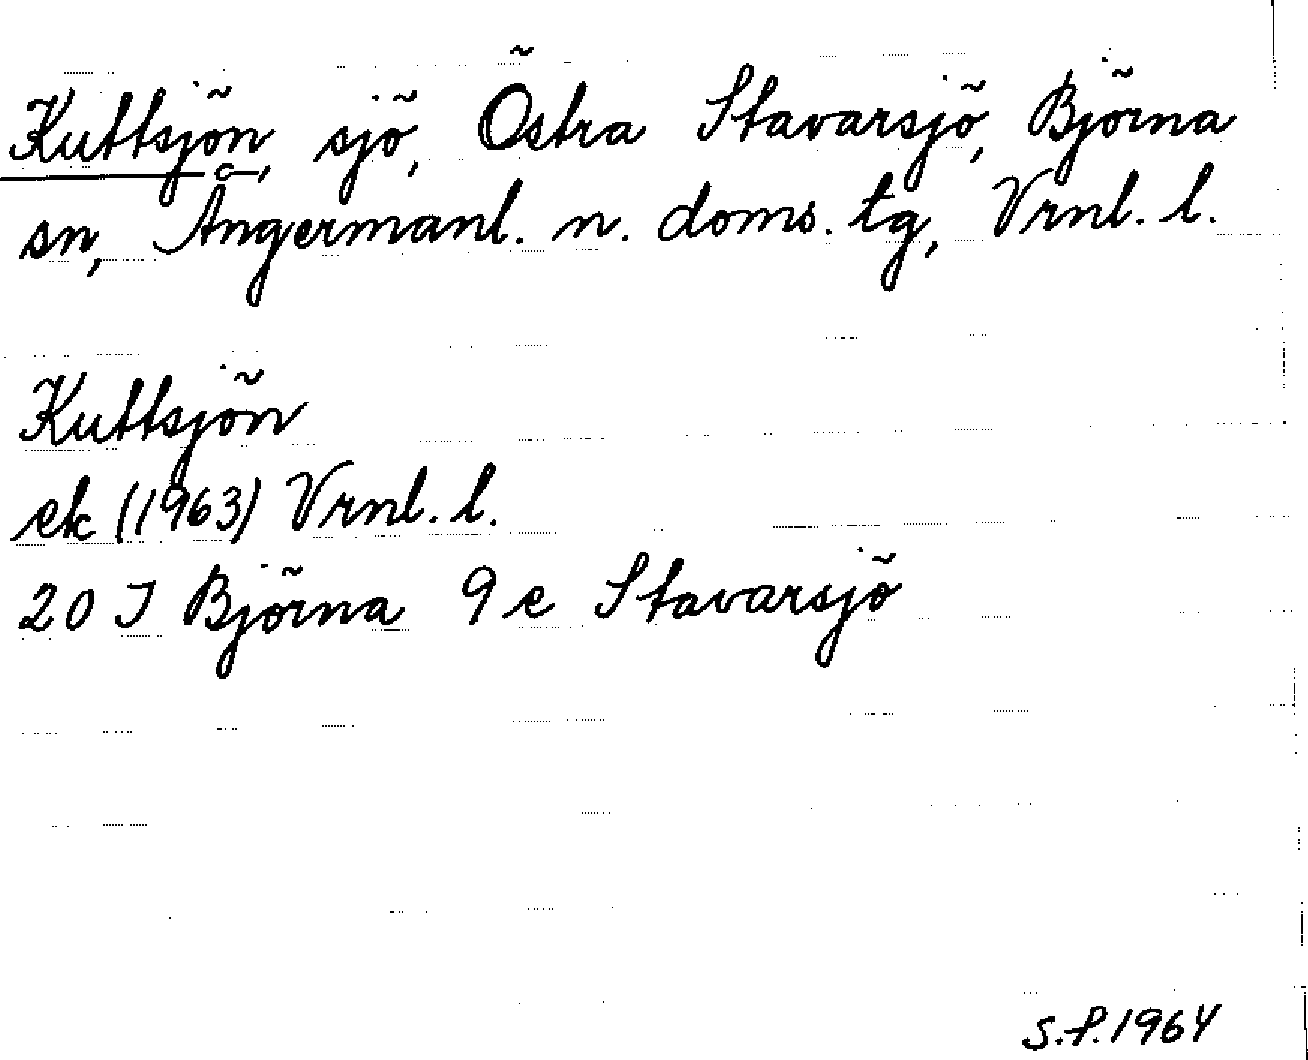 Kuttsjön, sjö, Östra Stavarsjö, Björna
sn, Ångermanl. n. doms. tg, Vrnl. l.
Kuttsjön
ek (1963) Vrnl. l.
20 I Björna 9 e Stavarsjö
S.P. 1964